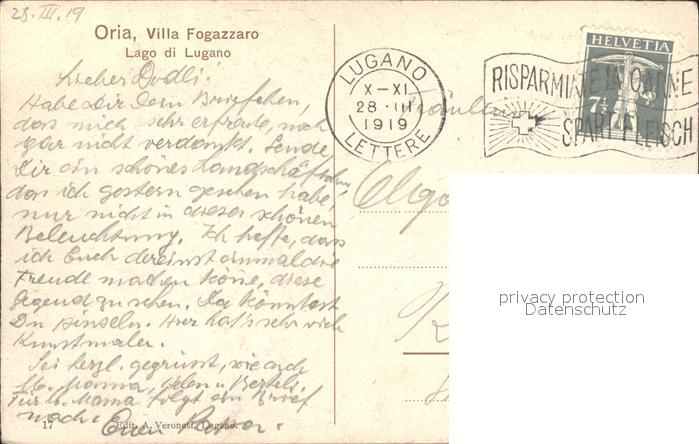 28. III. 19
Oria, Villa Fogazzaro
Lago di Lugano
Lieber Dodli!
Habe Dir Dein Briefchen,
das mich sehr erfreute, noch
gar nicht verdankt. Sende
Dir ein schönes Landschäftchen,
das ich gestern gesehen habe,
nur nicht in dieser schönen
Beleuchtung. Ich hoffe, dass
ich Euch dereinst einmal die
Freude machen könne, diese
Gegend zu sehen. Da könntest
Du pinseln. Hier hat's sehr viele
Kunstmaler.
Sei herzl. gegrüsst, wie auch
Mamma, Helen u.
Für Mama folgt ein Brief
nach.
Euer
17 Edit. A. Veronesi, Lugano.
LUGANO
X-XI
28 · III
1919
LETTERE
RISPARMIATE LA CARNE
SPART FLEISCH
HELVETIA
7½
Fräulein
privacy protection
Datenschutz